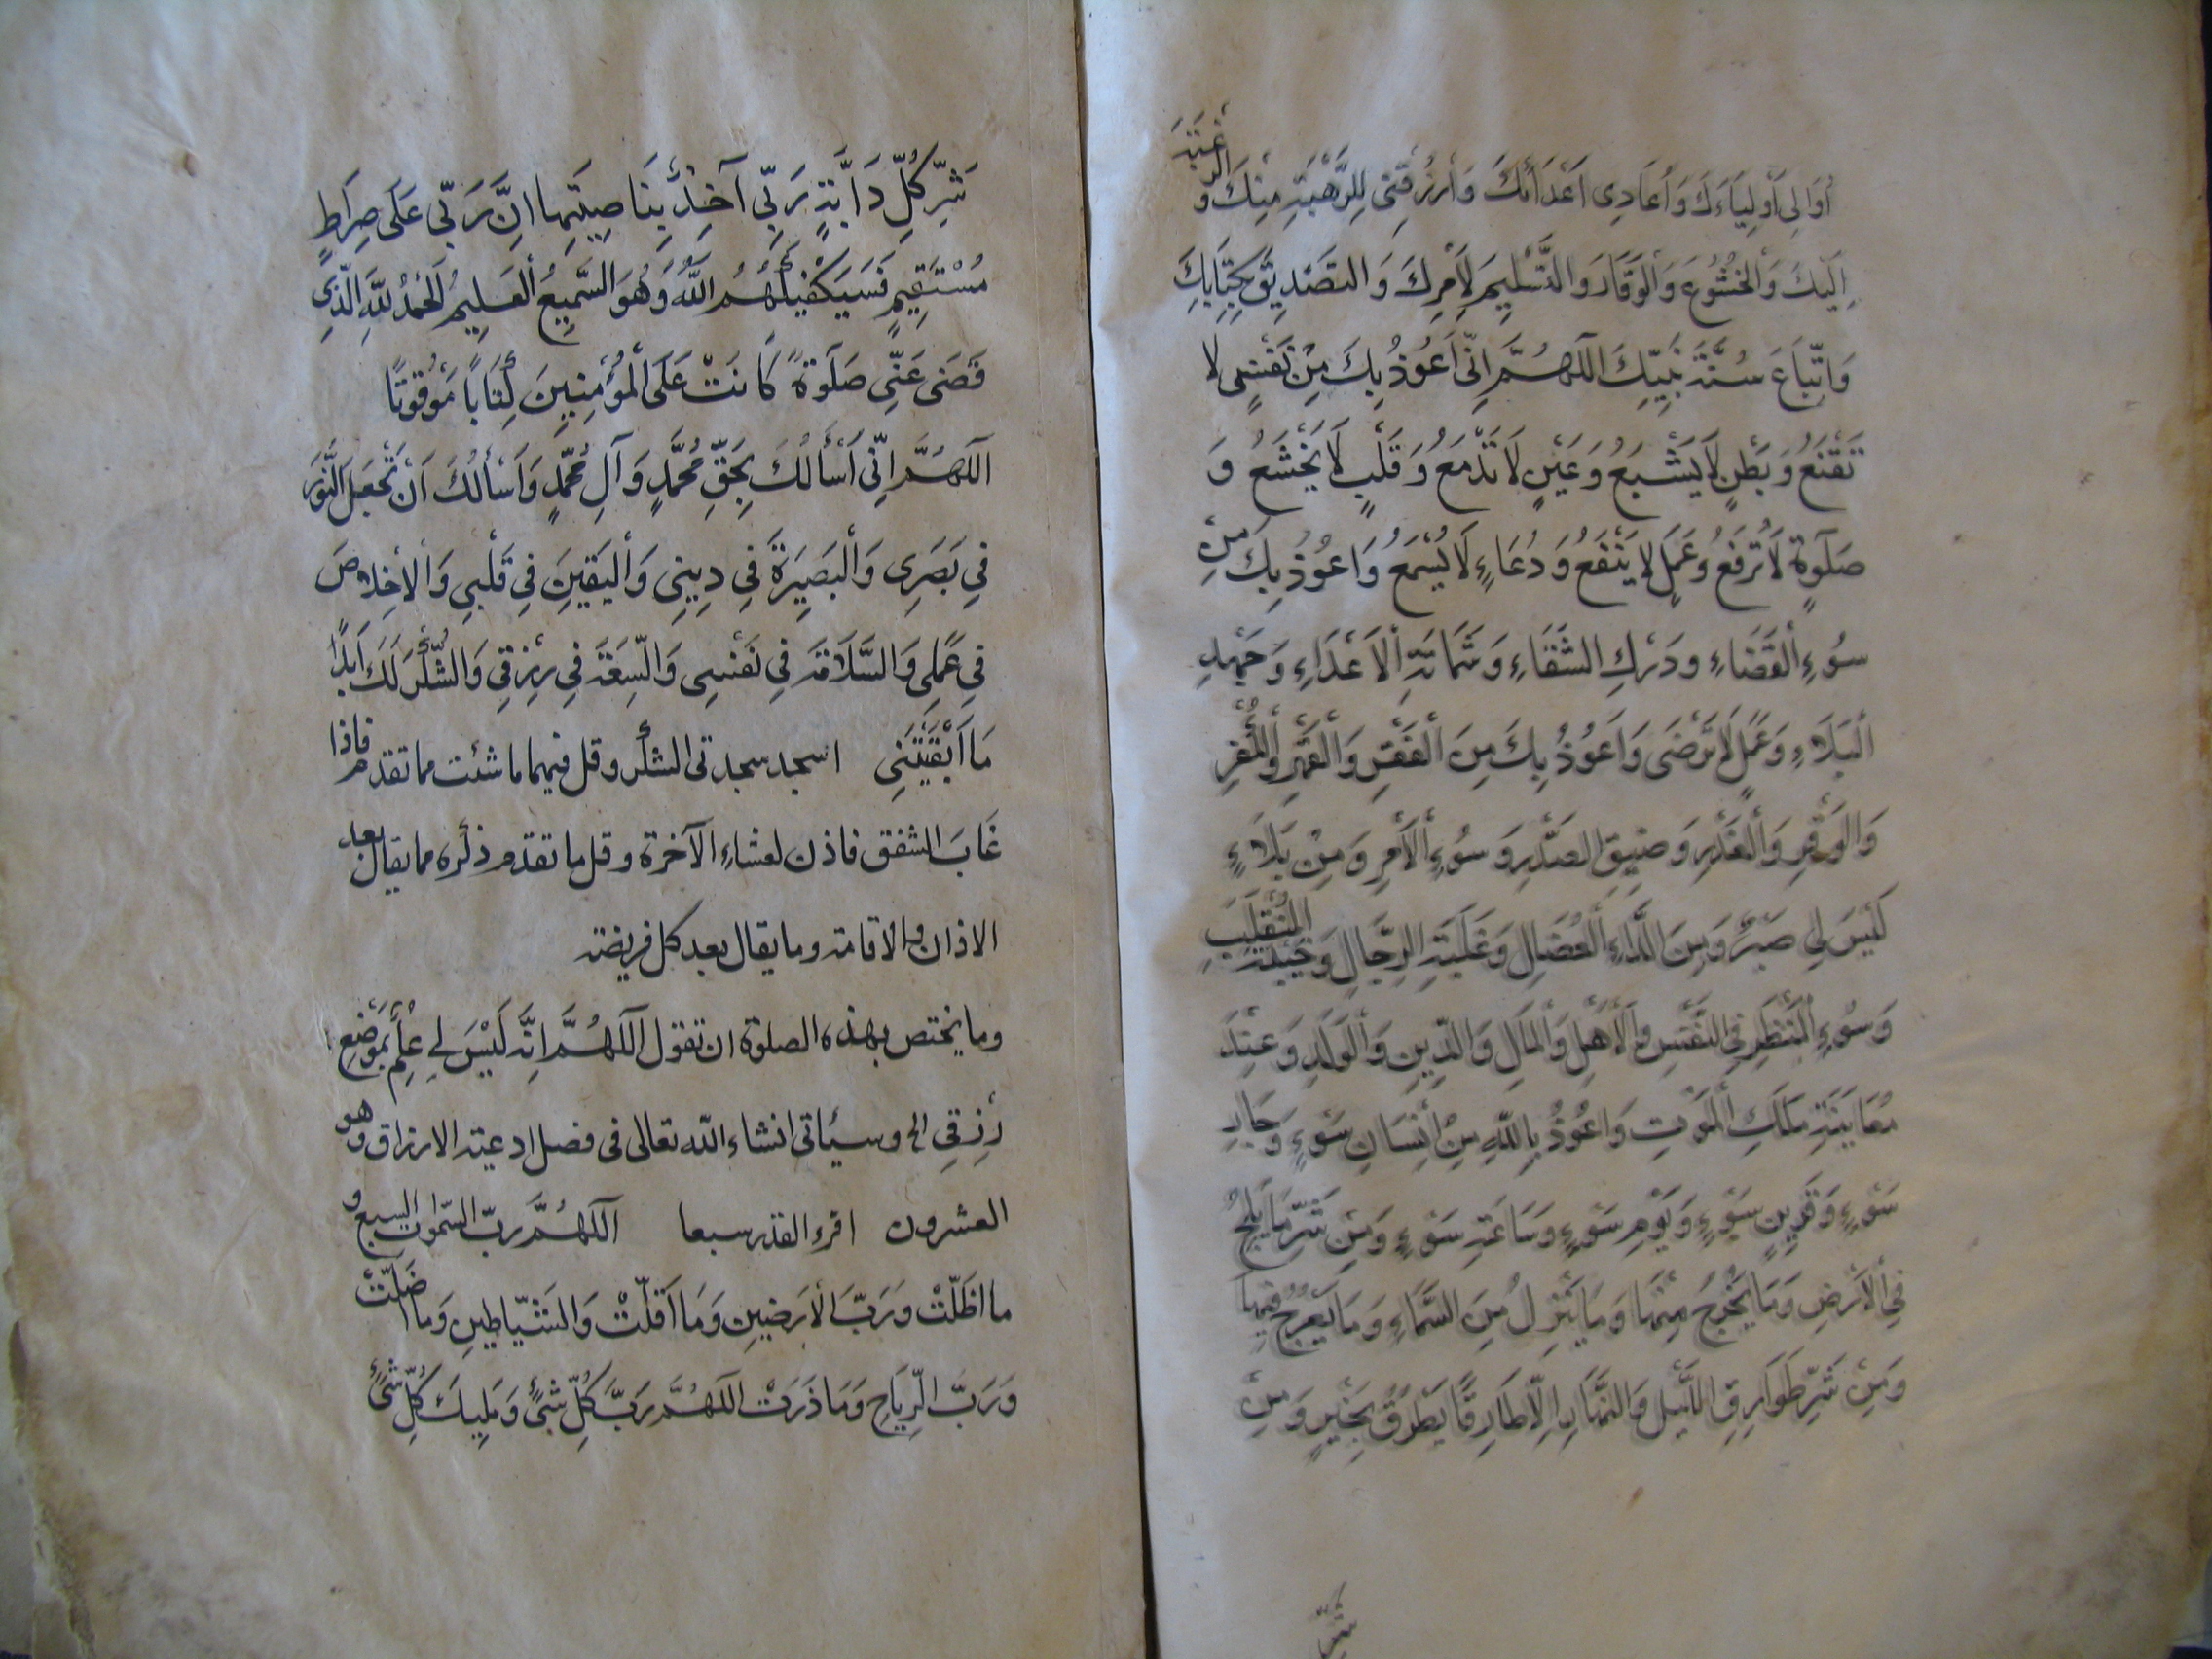 أُوَالِىَ أَوْلِيَاءَكَ وَأُعَادِى أَعْدَائَكَ وَأرْزُقْنِى لِلرَّهْبَةِ مِنْكَ وَ الرَّغْبَةَ
اِلَيْكَ وَالْخُشُوعَ وَالْوَقَارَ وَالتَّسْلِيمَ لِأَمْرِكَ وَالتَصْدِيقَ بِكِتَابِكَ
وَاتِّبَاعَ سُنَّةِ نَبِيِّكَ اللَّهُمَّ اِنِّى اَعُوذُ بِكَ مِنْ نَفْسٍ لا
تَقْنَعُ وَبَطْنٍ لَا يَشْبَعُ وَعَيْنٍ لَا تَدْمَعُ وَقَلْبٍ لَا يَخْشَعُ وَ
صَلَوٰةٍ لَا تُرْفَعُ وَعَمَلٍ لا يَنْفَعُ وَدُعَاءٍ لَا يُسْمَعُ وَاَعُوذُ بِكَ مِنْ
سُوءِ الْقَضَاءِ ودَرْكِ الشَّقَاءِ وَشَمَاتَةِ الْاَعْدَاءِ وَجَهْدِ
الْبَلَاءِ وَعَمَلٍ لَا تَرْضَى وَاَعُوذُ بِكَ مِنَ الْفَقْرِ وَالْقَهْرِ وَالْكُفْرِ
وَالْوَقْرِ وَالْغَدْرِ وَضِيقِ الصَّدْرِ وَسُوءِ الْأَمْرِ وَمِنْ بَلَاءٍ
لَيْسَ لِى صَبْرٌ وَمِنَ الدَّاءِ الْعُضَالِ وَغَلَبَةِ الرِّجَالِ وَخَيْبَةِ الْمُنْقَلَبِ
وَسُوءِ الْمَنْظَرِ فِى النَّفْسِ وَالْأَهْلِ وَالْمَالِ وَالدِّينِ وَالْوَلَدِ وَعِنْدَ
مُعَايَنَةِ مَلَكِ الْمَوْتِ وَاَعُوذُ بِاللّهِ مِنْ اِنْسَانِ سَوْءٍ وَجَارِ
سَوْءٍ وَقَرِينِ سَوْءٍ وَيَوْمِ سَوْءٍ وَسَاعَةِ سَوْءٍ وَمِنْ شَرِّ مَا يَلِجُ
فِى الْأَرْضِ وَمَا يَخْرُجُ مِنْهَا وَمَا يَنْزِلُ مِنَ السَّمَاءِ وَمَا يَعْرُجُ فِيهَا
وَمِنْ شَرِّ طَوَارِقِ اللَّيْلِ وَالنَّهَارِ اِلَّا طَارِقًا يَطْرُقُ بِخَيْرٍ وَمِنْ
شَرِّ
شَرِّ كُلِّ دَابَّةٍ رَبِّى آخِذٌ بِنَاصِيَتِهَا اِنَّ رَبِّى عَلَى صِرَاطٍ
مُسْتَقِيمٍ فَسَيَكْفِيكَهُمُ اللَّهُ وَهُوَ السَّمِيعُ الْعَلِيمُ الْحَمْدُ لِلَّهِ الَّذِى
قَضَى عَنِّى صَلَوٰةً كَانَتْ عَلَى الْمُؤْمِنِينَ كِتَابًا مَوْقُوتًا
اللَّهُمَّ اِنِّى اَسْأَلُكَ بِحَقِّ مُحَمَّدٍ وَآلِ مُحَمَّدٍ وَاَسْأَلُكَ اَنْ تَجْعَلَ النُّورَ
فِى بَصَرِى وَالْبَصِيرَةَ فِى دِينِى وَالْيَقِينَ فِى قَلْبِى وَالْاِخْلَاصَ
فِى عَمَلِى وَالسَّلَامَةَ فِى نَفْسِى وَالسِّعَةَ فِى رِزْقِى وَالشُّكْرَ لَكَ اَبَدًا
مَا اَبْقَيْتَنِى اسجد سجدتى الشكر وقل فيهما ما شئت مما تقدم فاذا
غَابَ الشفق فاذن لعشاءِ الآخرة وقل ما تقدم ذكره مما يقال بعد
الاذان والاقامة وما يقال بعد كل فريضة
وما يختص بهذه الصلوة ان تقول اللَّهُمَّ اِنَّهُ لَيْسَ لِى عِلْمٌ بِمَوْضِعِ
رِزْقِى الخ وسيأتى انشاء الله تعالى فى فصل ادعية الارزاق وهو
العشرون اقرء القدر سبعا اللَّهُمَّ ربّ السّموات السبع و
ما اظَلَّتْ وَرَبَّ الْاَرَضِينِ وَمَا اَقَلَّتْ وَالشَّيَاطِينِ وَمَا اَضَلَّتْ
وَرَبَّ الرِّيَاحِ وَمَا ذَرَتْ اللَّهُمَّ رَبَّ كُلِّ شَىْءٍ وَمَلِيكَ كُلِّ شَىْءٍ